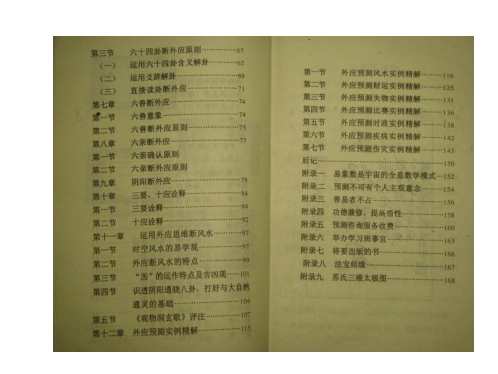 第三节 六十四卦断外应原则
(一) 运用六十四卦含义解卦
(二) 运用爻辞解卦 69
(三) 直接读卦断外应 71
第七章 六兽断外应 74
第一节 六兽意象 74
第二节 六兽断外应原则 75
第八章 六亲断外应 77
第一节 六亲确认原则
第二节 六亲断外应原则
第九章 阴阳断外应
第十章 三要、十应诠释
第一节 三要诠释
第二节 十应诠释
第十一章 运用外应思维断风水
第一节 时空风水的易学观
第二节 外应断风水的特点
第三节 的运作特点及吉凶观 101
第四节 识透阴阳通晓八卦，打好与大自然
通灵的基础 106
第五节 《观物洞玄歌》评注 107
第十二章 外应预测实例精解 115
第一节 外应预测风水实例精解 116
第二节 外应预测财运实例精解 125
第三节 外应预测失物实例精解 131
第四节 外应预测比赛实例精解 136
第五节 外应预测时政实例精解 138
第六节 外应预测疾病实例精解 142
第七节 外应预测伤灾实例精解 143
后记 150
附录一 易象数是宇宙的全息数学模式 152
附录二 预测不可有个人主观意念 154
附录三 善易者不占
附录四 功德兼修，提高悟性
附录五 预测咨询服务收费
附录六 举办学习班事宜 163
附录七 将要出版的书
附录八 法宝结缘
附录九 苏氏三维太极图 168